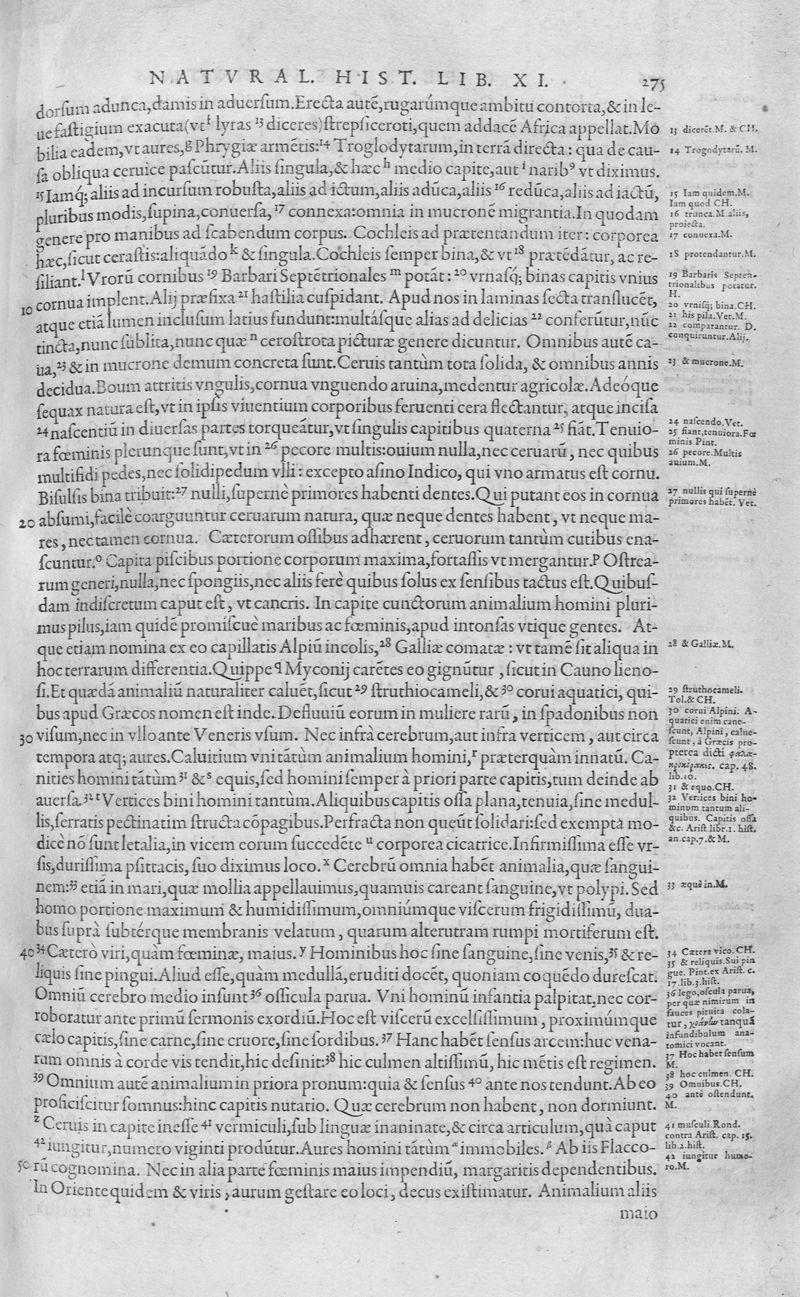 NATVRAL. HIST. LIB. XI. 275
dorſum adunca, damis in aduerſum. Erecta autē, rugarúmque ambitu contorta, & in le-
ue faſtigium exacuta (vt ᶠ lyras ¹³ diceres) ſtrepſiceroti, quem addacē Africa appellat. Mo
bilia eadem, vt aures, ᵍ Phrygiæ armētis: ¹⁴ Troglodytarum, in terrā directa : qua de cau-
ſa obliqua ceruice paſcūtur. Aliis ſingula, & hæc ʰ medio capite, aut ⁱ narib⁹ vt diximus.
¹⁵ Iamq; aliis ad incurſum robuſta, aliis ad ictum, aliis adūca, aliis ¹⁶ redūca, aliis ad iactū,
pluribus modis, ſupina, conuerſa, ¹⁷ connexa: omnia in mucronē migrantia. In quodam
genere pro manibus ad ſcabendum corpus. Cochleis ad prætentandum iter: corporea
hæc, ſicut ceraſtis: aliquādo ᵏ & ſingula. Cochleis ſemper bina, & vt ¹⁸ prætēdātur, ac re-
ſiliant. ˡ Vrorū cornibus ¹⁹ Barbari Septētrionales ᵐ potāt: ²⁰ vrnaſq; binas capitis vnius
10 cornua implent. Alij præfixa ²¹ haſtilia cuſpidant. Apud nos in laminas ſecta tranſlucēt,
atque etiā lumen incluſum latius fundunt: multáſque alias ad delicias ²² conferūtur, nūc
tincta, nunc ſublita, nunc quæ ⁿ ceroſtrota picturæ genere dicuntur. Omnibus autē ca-
ua, ²³ & in mucrone demum concreta ſunt. Ceruis tantùm tota ſolida, & omnibus annis
decidua. Boum attritis vngulis, cornua vnguendo aruina, medentur agricolæ. Adeóque
ſequax natura eſt, vt in ipſis viuentium corporibus feruenti cera flectantur, atque inciſa
²⁴ naſcentiū in diuerſas partes torqueātur, vt ſingulis capitibus quaterna ²⁵ fiāt. Tenuio-
ra fœminis plerunque ſunt, vt in ²⁶ pecore multis: ouium nulla, nec ceruarū, nec quibus
multifidi pedes, nec ſolidipedum vlli: excepto aſino Indico, qui vno armatus eſt cornu.
Biſulſis bina tribuit: ²⁷ nulli, ſupernè primores habenti dentes. Qui putant eos in cornua
20 abſumi, facilè coarguuntur ceruarum natura, quæ neque dentes habent, vt neque ma-
res, nec tamen cornua. Cæterorum oſſibus adhærent, ceruorum tantùm cutibus ena-
ſcuntur. ᵒ Capita piſcibus portione corporum maxima, fortaſſis vt mergantur. ᵖ Oſtrea-
rum generi, nulla, nec ſpongiis, nec aliis ferè quibus ſolus ex ſenſibus tactus eſt. Quibuſ-
dam indiſcretum caput eſt, vt cancris. In capite cunctorum animalium homini pluri-
mus pilus, iam quidē promiſcuè maribus ac fœminis, apud intonſas vtique gentes. At-
que etiam nomina ex eo capillatis Alpiū incolis, ²⁸ Galliæ comatæ : vt tamē ſit aliqua in
hoc terrarum differentia. Quippe ᑫ Myconij carētes eo gignūtur, ſicut in Cauno lieno-
ſi. Et quædā animaliū naturaliter caluēt, ſicut ²⁹ ſtruthiocameli, & ³⁰ corui aquatici, qui-
bus apud Græcos nomen eſt inde. Defluuiū eorum in muliere rarū, in ſpadonibus non
30 viſum, nec in vllo ante Veneris vſum. Nec infrà cerebrum, aut infra verticem, aut circa
tempora atq; aures. Caluitium vni tātùm animalium homini, ʳ præterquàm innatū. Ca-
nities homini tātùm ³¹ & ˢ equis, ſed homini ſemper à priori parte capitis, tum deinde ab
auerſa. ³² ᵗ Vertices bini homini tantùm. Aliquibus capitis oſſa plana, tenuia, ſine medul-
lis, ſerratis pectinatim ſtructa cōpagibus. Perfracta non queūt ſolidari: ſed exempta mo-
dicè nō ſunt letalia, in vicem eorum ſuccedēte ᵘ corporea cicatrice. Infirmiſſima eſſe vr-
ſis, duriſſima pſittacis, ſuo diximus loco. ˣ Cerebrū omnia habēt animalia, quæ ſangui-
nem: ³³ etiā in mari, quæ mollia appellauimus, quamuis careant ſanguine, vt polypi. Sed
homo portione maximum & humidiſſimum, omniúmque viſcerum frigidiſſimū, dua-
bus ſuprà ſubtérque membranis velatum, quarum alterutram rumpi mortiferum eſt.
40 ³⁴ Cæterò viri, quàm fœminæ, maius. ʸ Hominibus hoc ſine ſanguine, ſine venis, ³⁵ & re-
liquis ſine pingui. Aliud eſſe, quàm medullā, eruditi docēt, quoniam coquēdo dureſcat.
Omniū cerebro medio inſunt ³⁶ oſſicula parua. Vni hominū infantia palpitat, nec cor-
roboratur ante primū ſermonis exordiū. Hoc eſt viſcerū excelſiſſimum, proximúmque
cælo capitis, ſine carne, ſine cruore, ſine ſordibus. ³⁷ Hanc habēt ſenſus arcem: huc vena-
rum omnis à corde vis tendit, hic definit: ³⁸ hic culmen altiſſimū, hic mētis eſt regimen.
³⁹ Omnium autē animalium in priora pronum: quia & ſenſus ⁴⁰ ante nos tendunt. Ab eo
proficiſcitur ſomnus: hinc capitis nutatio. Quæ cerebrum non habent, non dormiunt.
ᶻ Ceruis in capite ineſſe ⁴¹ vermiculi, ſub linguæ inanitate, & circa articulum, quà caput
⁴² iungitur, numero viginti prodūtur. Aures homini tātùm ᵃ immobiles. ᵝ Ab iis Flacco-
50 rū cognomina. Nec in alia parte fœminis maius impendiū, margaritis dependentibus.
In Oriente quidem & viris, aurum geſtare eo loci, decus exiſtimatur. Animalium aliis
maio
13 dicerēt. M. & CH.
14 Trogodytarū. M.
15 Iam quidem. M.
Iam quod CH.
16 trunca. M. aliis,
proiecta.
17 conuexa. M.
18 protendantur. M.
19 Barbaris Septen-
trionalibus potatur.
H.
20 vrniſq; bina. CH.
21 his pila. Vet. M.
22 comparantur. D.
conquiruntur. Alij.
23 & mucrone. M.
24 naſcendo. Vet.
25 fiant, tenuiora. Fœ
minis Pint.
26 pecore. Multis
auium. M.
27 nullis qui ſupernè
primores habēt. Vet.
28 & Galliæ. M.
29 ſtruthocameli.
Tol. & CH.
30 corui Alpini. A-
quatici enim cane-
ſcunt, Alpini, calue-
ſcunt, à Græcis pro-
pterea dicti φαλα-
κροκόρακες. cap. 48.
lib. 10.
31 & equo. CH.
32 Vertices bini ho-
minum tantum ali-
quibus. Capitis oſſa
&c. Ariſt. libr. 1. hiſt.
an. cap. 7. & M.
33 æquè in. M.
34 Cætera vico. CH.
35 & reliquis. Sui pin
gue. Pint. ex Ariſt. c.
17. lib. 3. hiſt.
36 lego, oſcula parua,
per quæ nimirum in
fauces pituita cola-
tur, χοάνων tanquā
infundibulum ana-
tomici vocant.
37 Hoc habet ſenſum
M.
38 hoc culmen. CH.
39 Omnibus. CH.
40 antè oſtendunt.
M.
41 muſculi. Rond.
contra Ariſt. cap. 15.
lib. 2. hiſt.
42 iungitur hume-
ro. M.